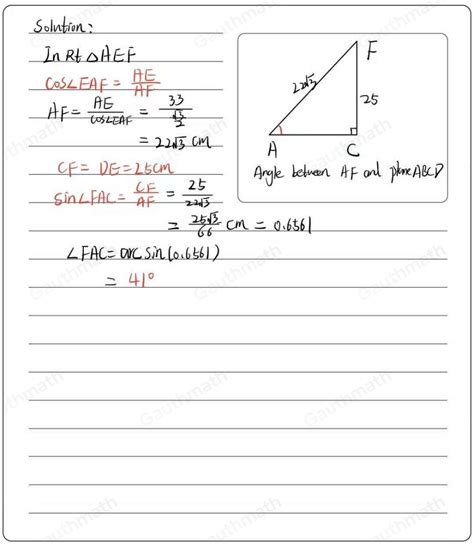 Solution:
In Rt △AEF
cos∠EAF = AE/AF
AF = AE/cos∠EAF = 33/(√3/2)
= 22√3 cm
CF = DE = 25cm
sin∠FAC = CF/AF = 25/22√3
= 25√3/66 cm = 0.6561
∠FAC = arcsin(0.6561)
= 41°
F
22√3
25
A
C
Angle between AF and plane ABCD
Gauthmath